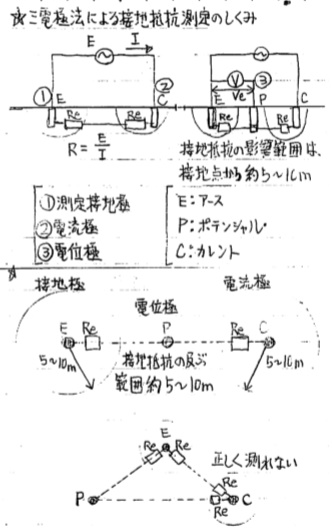 ☆三電極法による接地抵抗測定のしくみ
E I
① E ② C
Re Re
R = E/I
V ③
E Ve P C
Re Re
接地抵抗の影響範囲は、
接地点から約5～10m
①測定接地極
②電流極
③電位極
E:アース
P:ポテンシャル
C:カレント
接地極 電流極
電位極
E Re P Re C
5～10m 接地抵抗の及ぶ 5～10m
範囲約5～10m
E
Re Re 正しく測れない
P Re C
Re